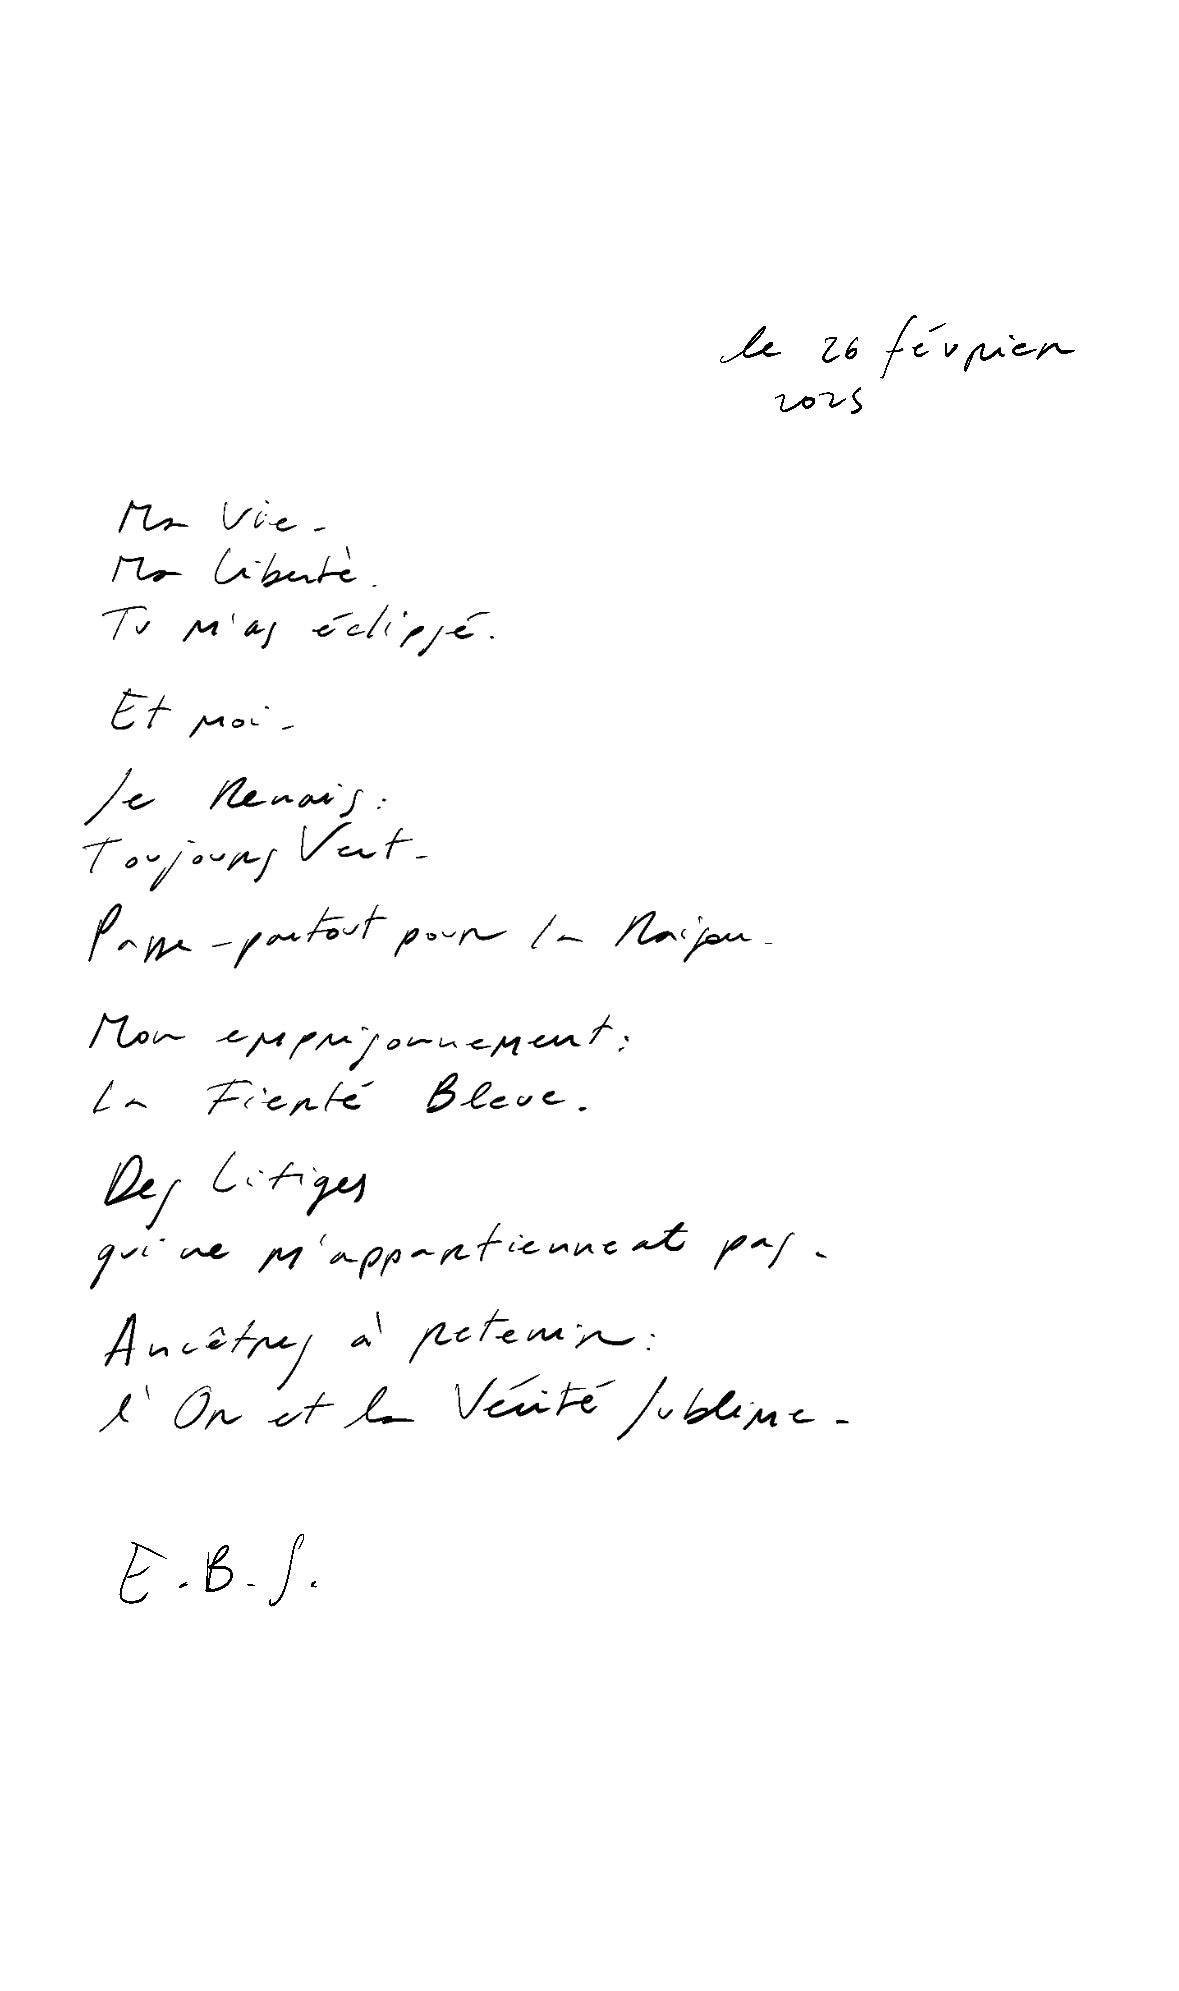 le 26 février
2025
Ma Vie -
Ma Liberté.
Tu m'as éclipsé.
Et moi -
Je Renais :
Toujours Vert -
Passe-partout pour la Raison -
Mon emprisonnement :
La Fierté Bleue.
Des Litiges
qui ne m'appartiennent pas -
Ancêtres à retenir :
l'Or et la Vérité Sublime -
E.B.S.